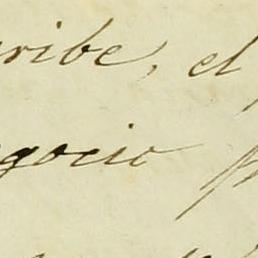 aribe, el
egocio